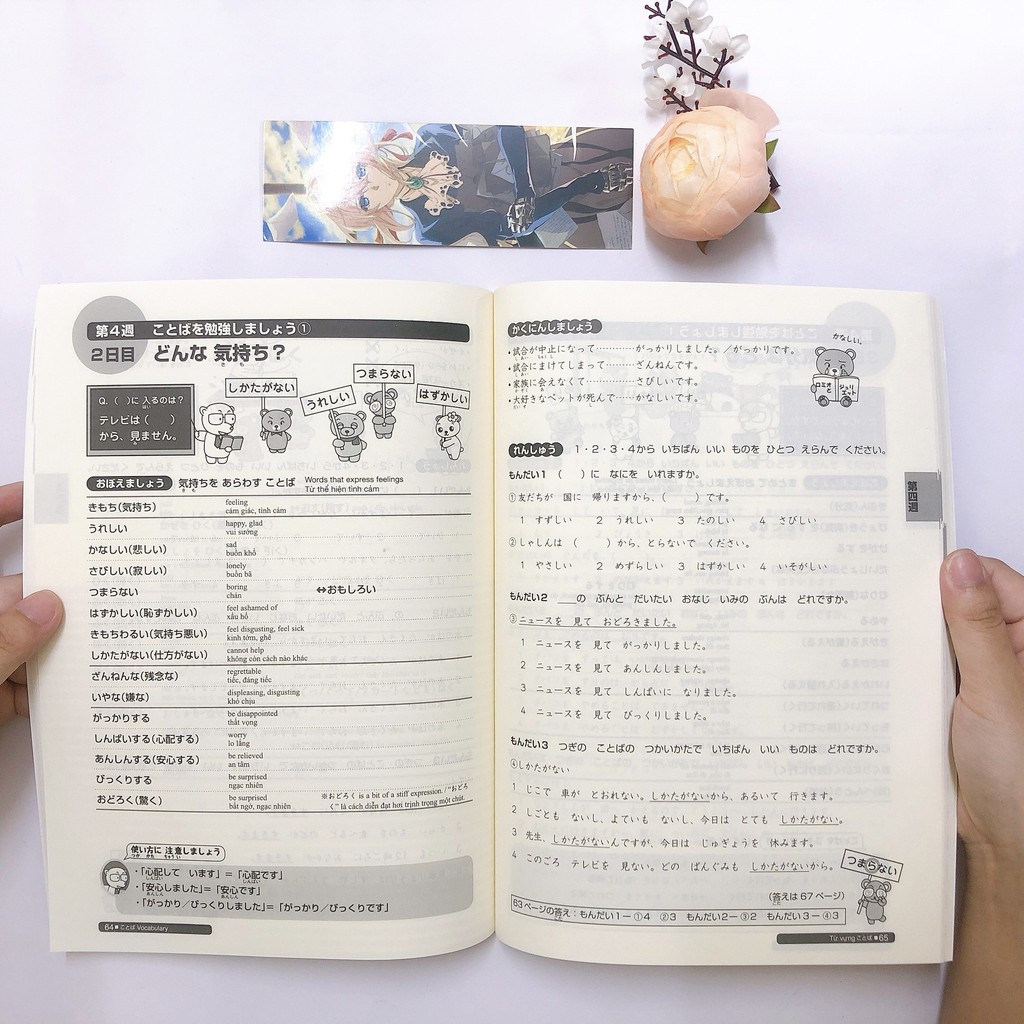 第4週 ことばを勉強しましょう①
2日目 どんな 気持ち？
き も
Q.（ ）に 入るのは？
はい
テレビは（ ）
から、見ません。
み
しかたがない
うれしい
つまらない
はずかしい
おぼえましょう 気持ちを あらわす ことば Words that express feelings
き も
Từ thể hiện tình cảm
きもち(気持ち) feeling
cảm giác, tình cảm
うれしい happy, glad
vui sướng
かなしい(悲しい) sad
buồn khổ
さびしい(寂しい) lonely
buồn bã
つまらない boring ⇔おもしろい
chán
はずかしい(恥ずかしい) feel ashamed of
xấu hổ
きもちわるい(気持ち悪い) feel disgusting, feel sick
kinh tởm, ghê
しかたがない(仕方がない) cannot help
không còn cách nào khác
ざんねんな(残念な) regrettable
tiếc, đáng tiếc
いやな(嫌な) displeasing, disgusting
khó chịu
がっかりする be disappointed
thất vọng
しんぱいする(心配する) worry
lo lắng
あんしんする(安心する) be relieved
an tâm
びっくりする be surprised
ngạc nhiên
おどろく(驚く) be surprised
bất ngờ, ngạc nhiên
※おどろく is a bit of a stiff expression. / “おどろ
く” là cách diễn đạt hơi trịnh trọng một chút.
使い方に 注意しましょう
つか かた ちゅうい
・「心配して います」＝「心配です」
しんぱい しんぱい
・「安心しました」＝「安心です」
あんしん あんしん
・「がっかり／びっくりしました」＝「がっかり／びっくりです」
64 ことば Vocabulary
かくにんしましょう
・試合が中止になって…………がっかりしました。／がっかりです。
しあい ちゅうし
・試合にまけてしまって…………ざんねんです。
しあい
・家族に会えなくて…………さびしいです。
かぞく あ
・大好きなペットが死んで……かなしいです。
だいす し
かなしい。
ロミオと
ジュリエット
れんしゅう 1・2・3・4から いちばん いい ものを ひとつ えらんで ください。
もんだい1 （ ）に なにを いれますか。
①友だちが 国に 帰りますから、（ ）です。
1 すずしい 2 うれしい 3 たのしい 4 さびしい
②しゃしんは （ ）から、とらないで ください。
1 やさしい 2 めずらしい 3 はずかしい 4 いそがしい
もんだい2 ＿＿の ぶんと だいたい おなじ いみの ぶんは どれですか。
③ニュースを 見て おどろきました。
1 ニュースを 見て がっかりしました。
2 ニュースを 見て あんしんしました。
3 ニュースを 見て しんぱいに なりました。
4 ニュースを 見て びっくりしました。
もんだい3 つぎの ことばの つかいかたで いちばん いい ものは どれですか。
④しかたがない
1 じこで 車が とおれない。しかたがないから、あるいて 行きます。
2 しごとも ないし、よていも ないし、今日は とても しかたがない。
3 先生、しかたがないんですが、今日は じゅぎょうを 休みます。
4 このごろ テレビを 見ない。どの ばんぐみも しかたがないから。
つまらない
(答えは 67 ページ)
こた
63ページの答え：もんだい1－①4 ②3 もんだい2－③2 もんだい3－④3
こた
Từ vựng ことば 65
第四週